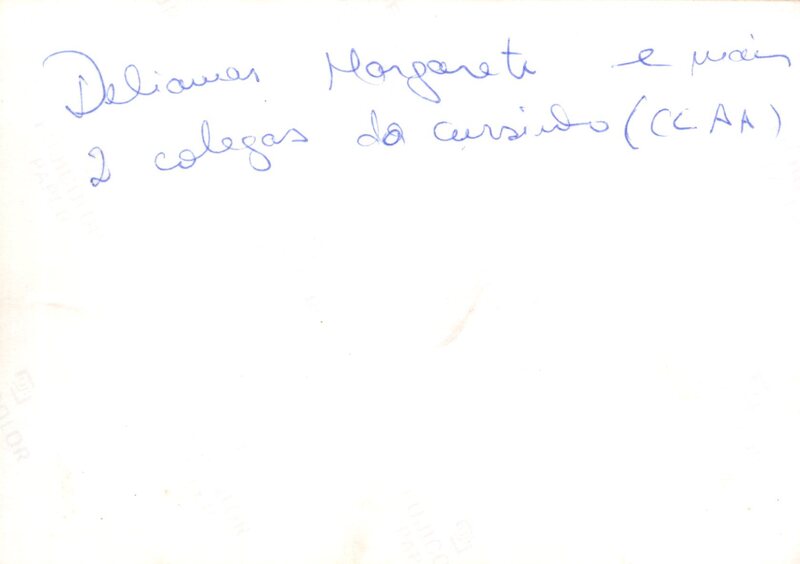 Deliamar Margarete e mais
2 colegas do cursinho (CCAA)